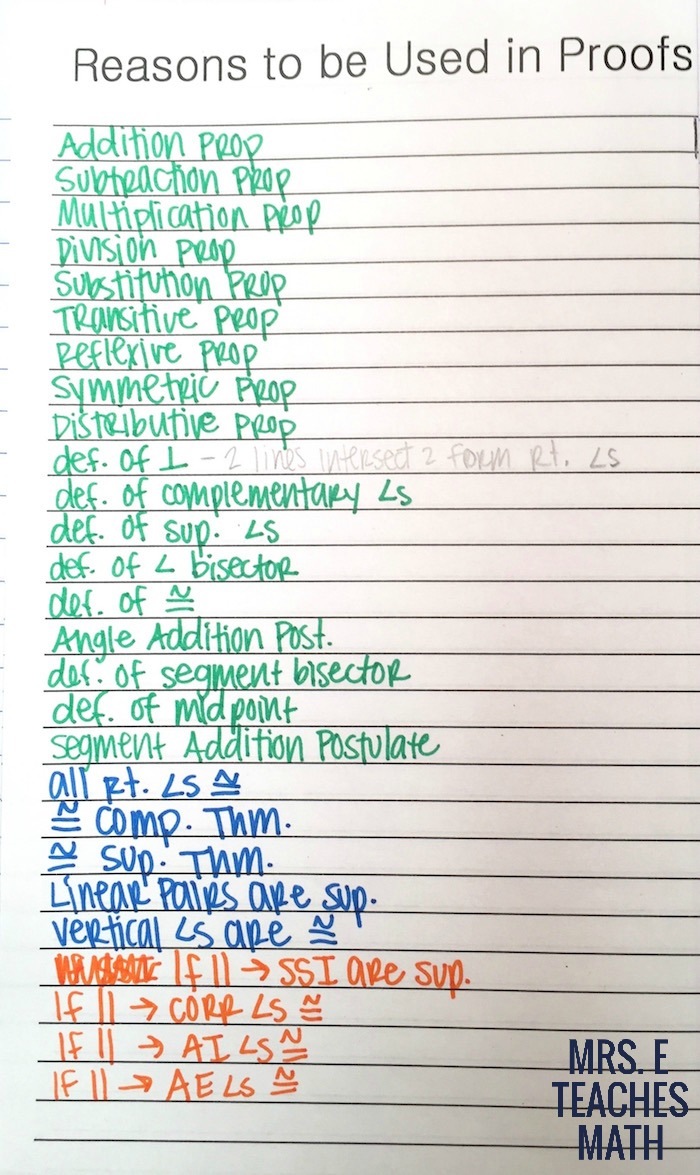 Reasons to be Used in Proofs
Addition Prop
Subtraction Prop
Multiplication Prop
Division Prop
Substitution Prop
Transitive Prop
Reflexive Prop
Symmetric Prop
Distributive Prop
def. of ⊥ - 2 lines intersect 2 form rt. ∠s
def. of complementary ∠s
def. of sup. ∠s
def. of ∠ bisector
def. of ≅
Angle Addition Post.
def. of segment bisector
def. of midpoint
Segment Addition Postulate
all rt. ∠s ≅
≅ comp. Thm.
≅ sup. Thm.
Linear Pairs are sup.
vertical ∠s are ≅
If || → SSI are sup.
If || → CORR ∠s ≅
If || → AI ∠s ≅
If || → AE ∠s ≅
MRS. E
TEACHES
MATH